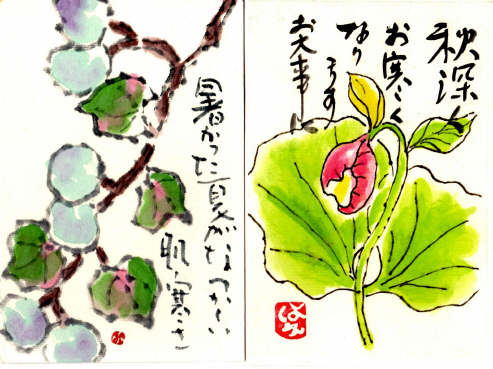 暑かった夏がなつかしい
肌寒さ
秋深く
お寒く
なります
お大事に